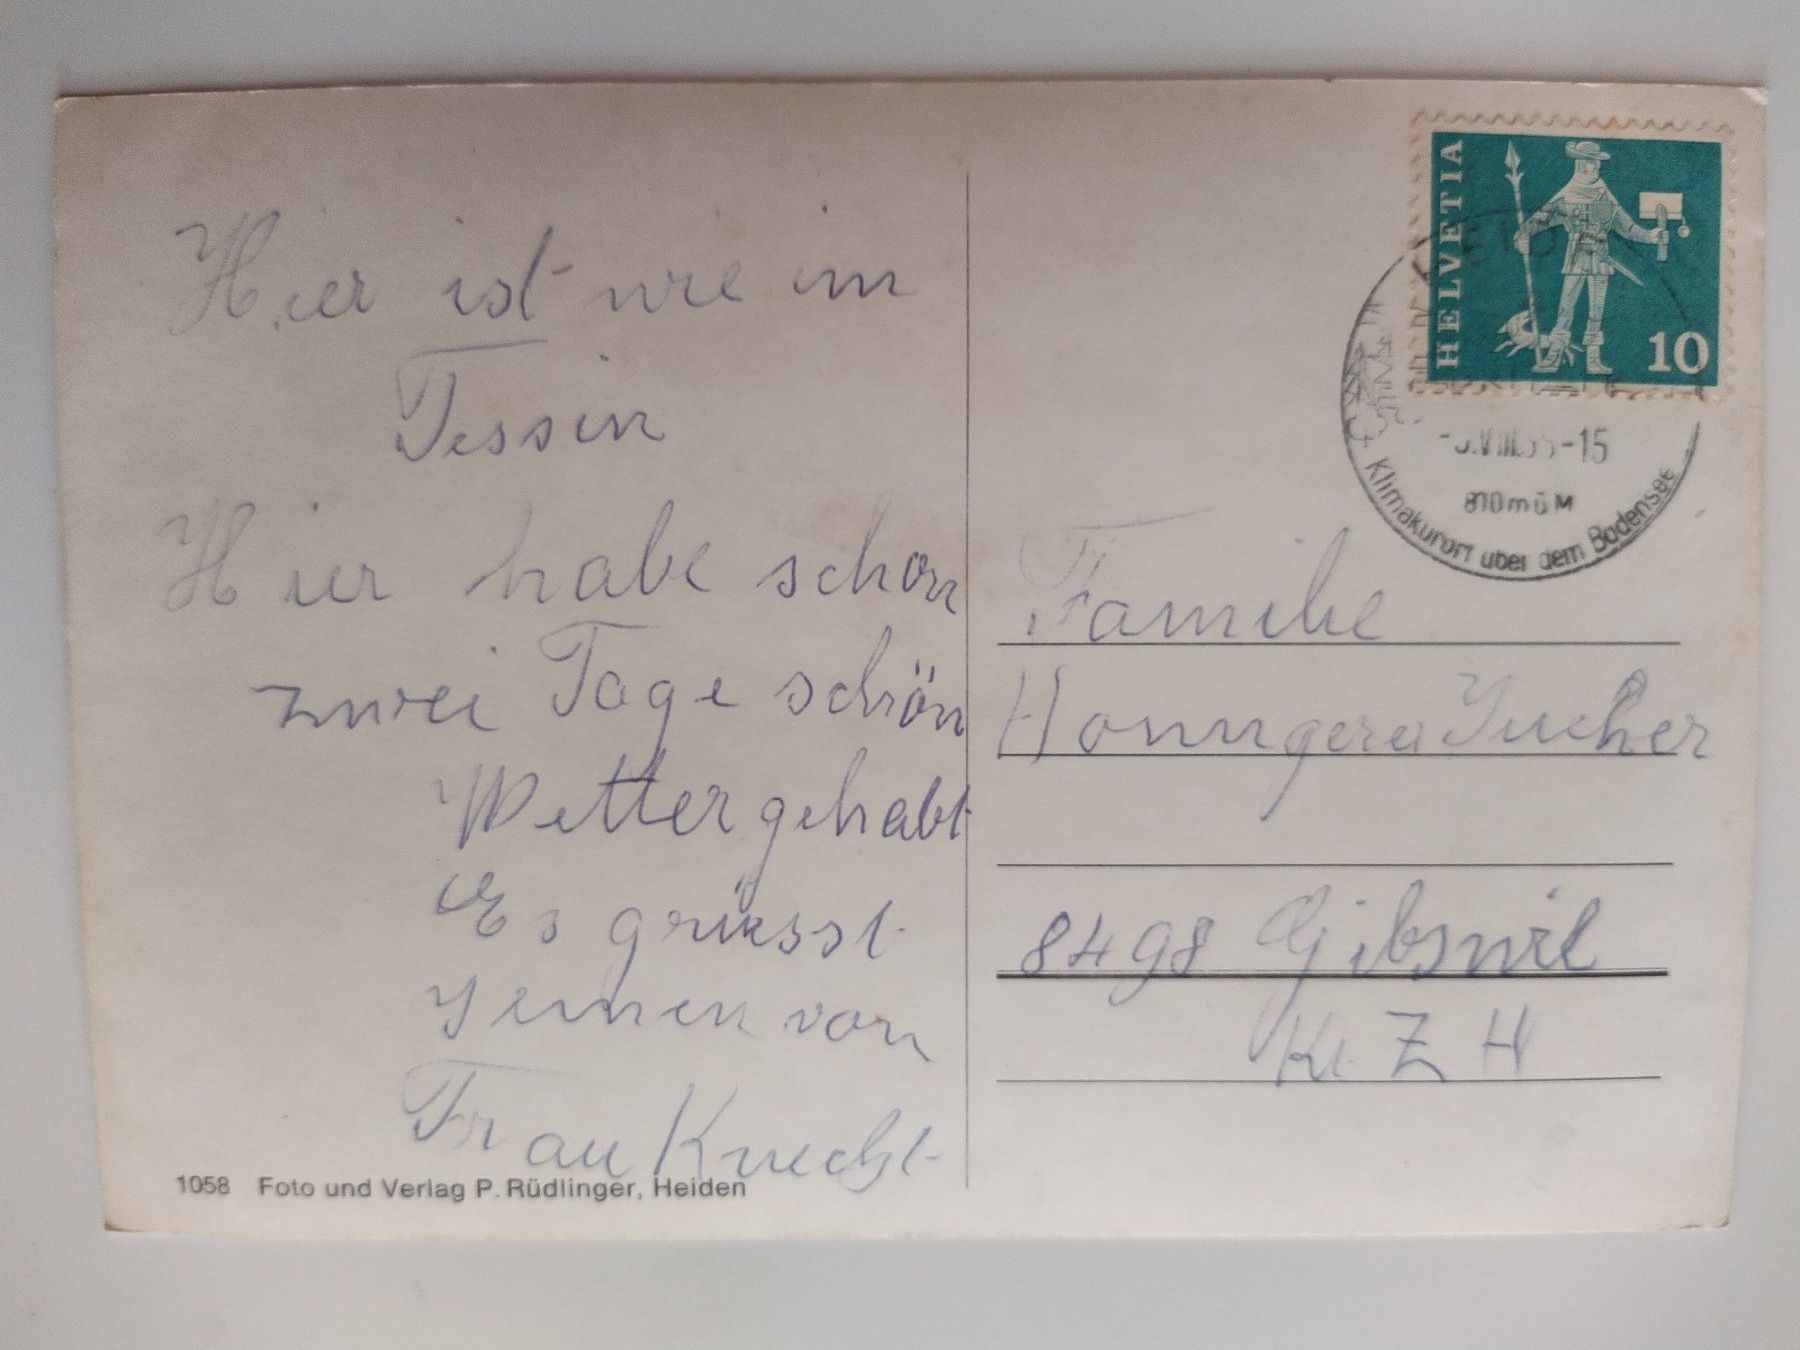 Hier ist wie im
Tessin
Hier habe schon
zwei Tage schön
Wetter gehabt
Es grüesst
Ienen von
Frau Knecht
1058 Foto und Verlag P. Rüdlinger, Heiden
HELVETIA
10
-15
810 m ü M
Klimakurort über dem Bodensee
Familie
8498 Gibswil
Kt ZH